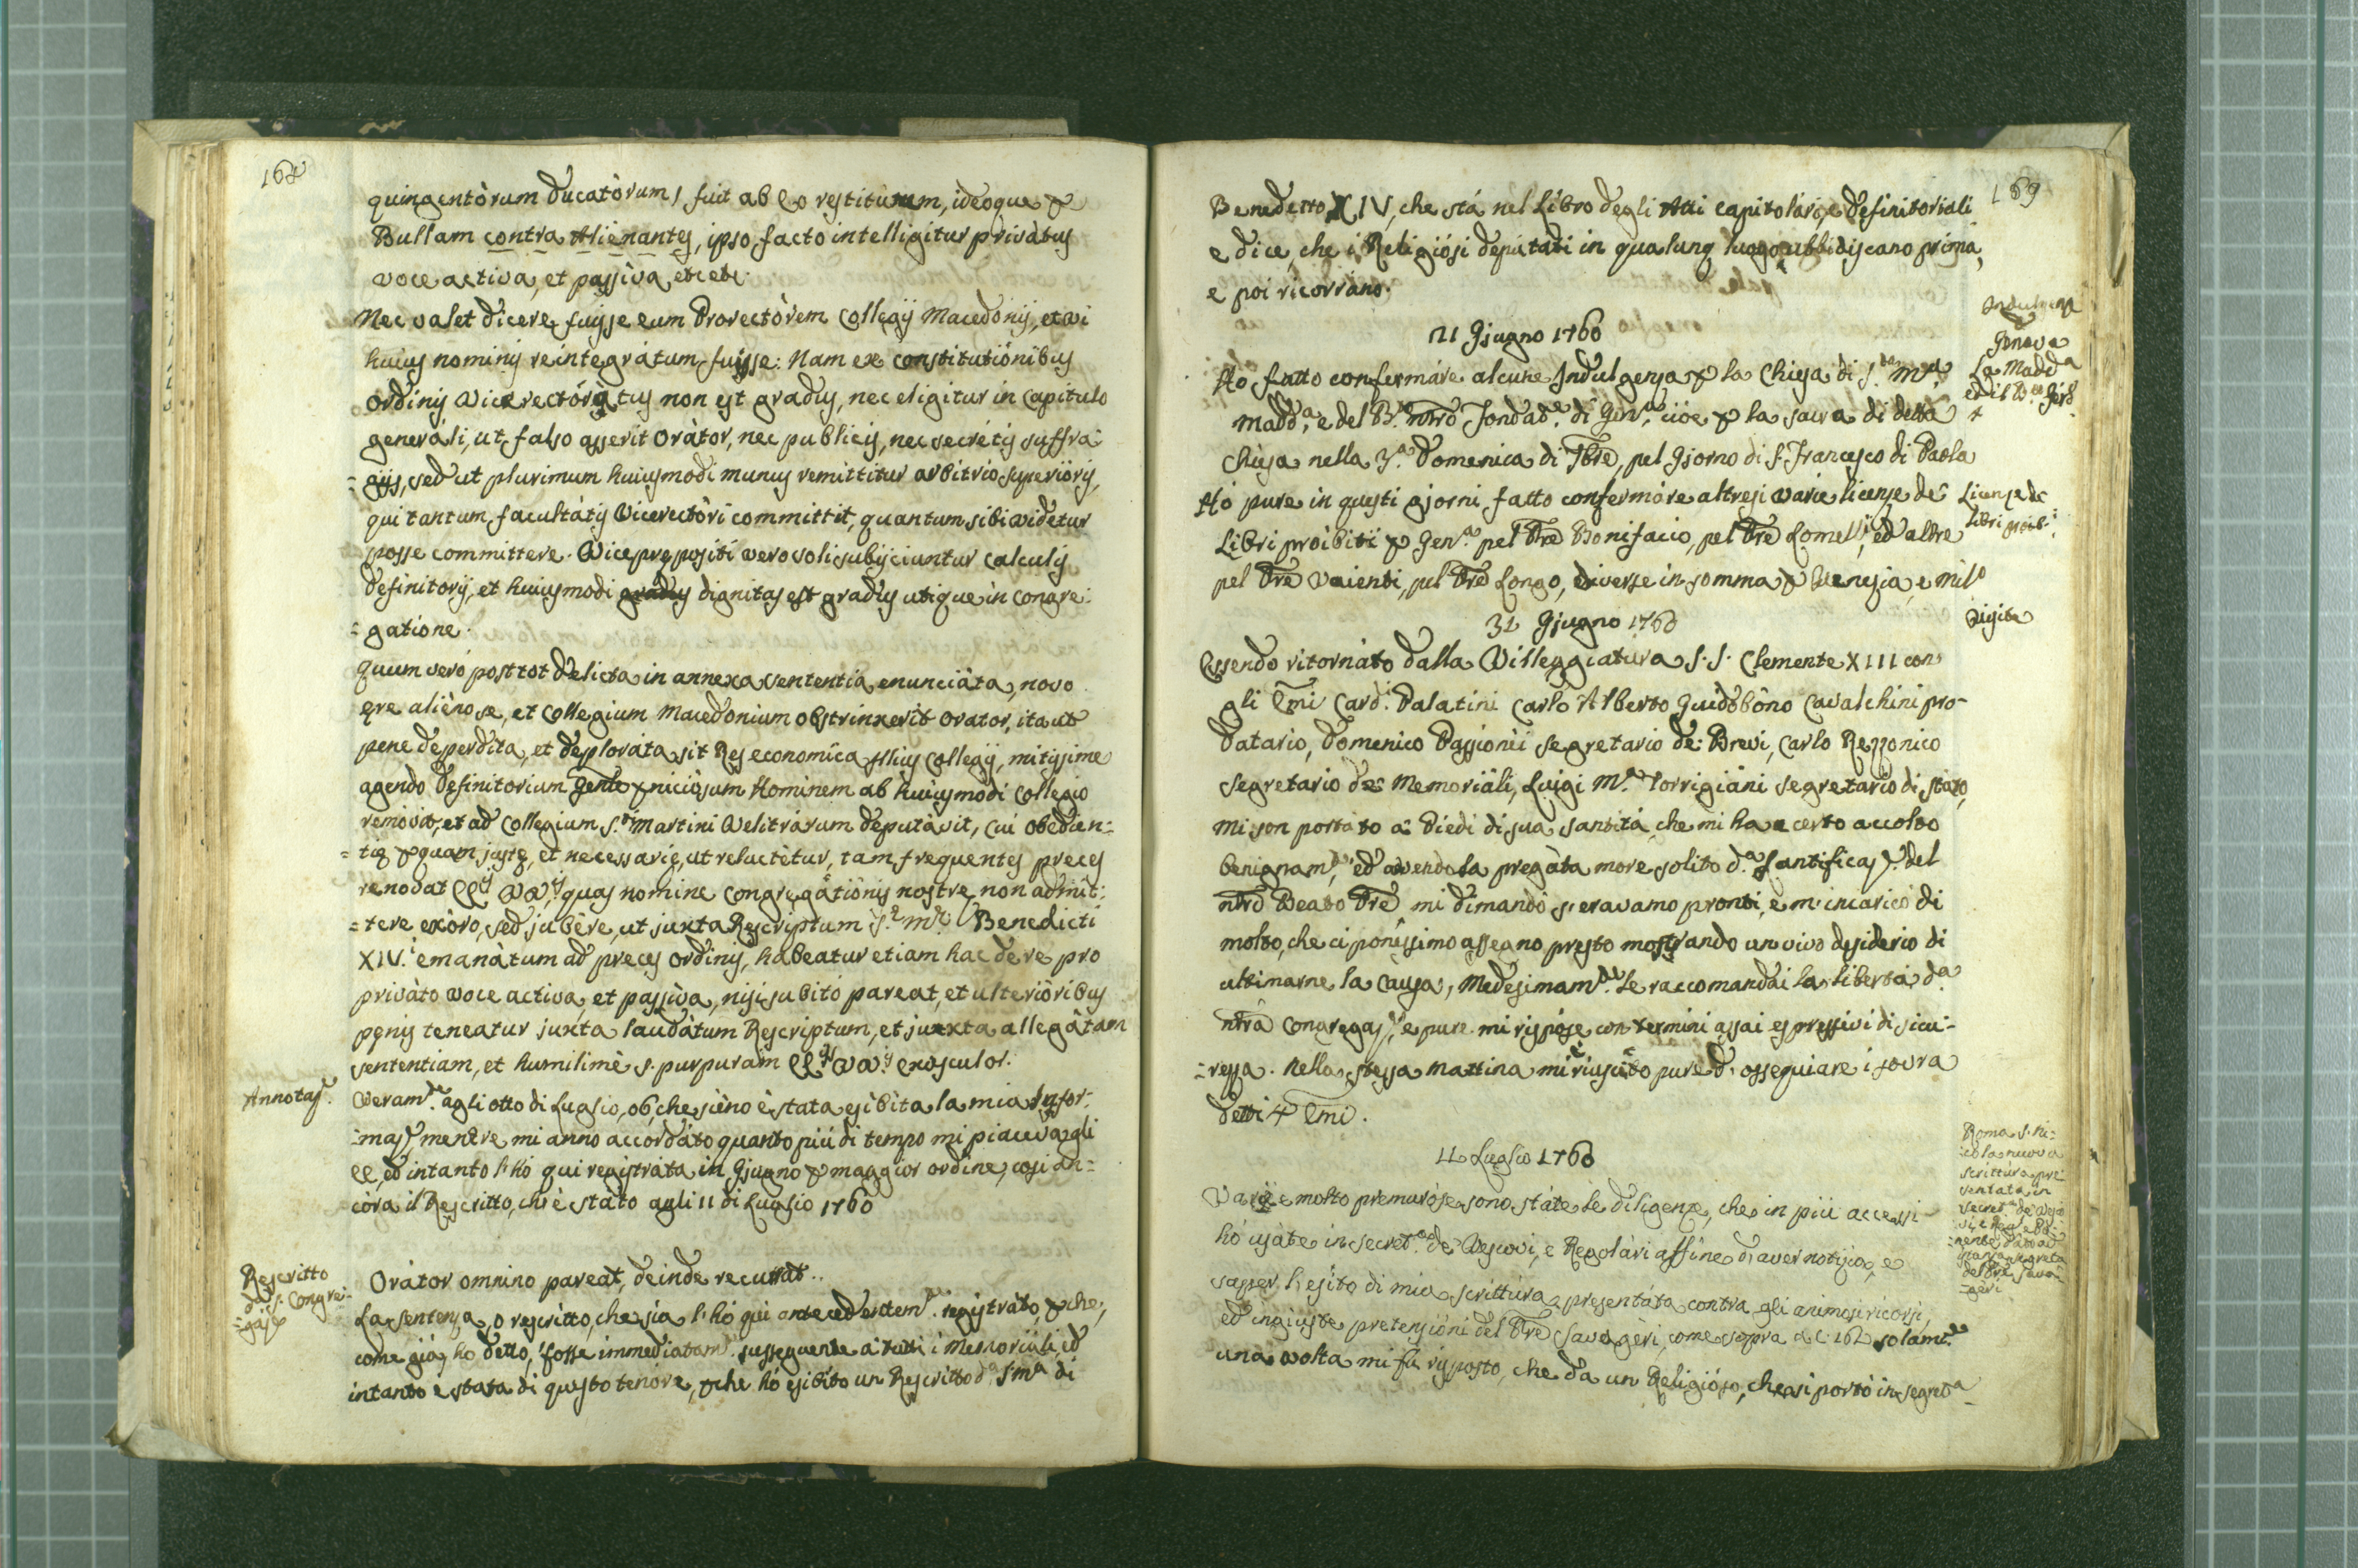 168
quingentòrum ducatòrum, fuit ab eo restitutum, ideoque p
Bullam contra Alienantes, ipso facto intelligitur privàtus
voce activa, et passiva, etc etc.
Nec valet dicere fuisse eum Provectòrem Collegij Macedonij, et vi
huius nominis reintegràtum fuisse: Nam ex constitutiònibus
Ordinis Vicerectóràtus non est gradus, nec eligitur in Capitulo
generàli, ut falso asserit Oràtor, nec publicis, nec secrètis suffra-
=gijs, sed ut plurimum huiusmodi munus remittitur arbitrio superiòris,
qui tantum facultàtis Vicerectòri committit, quantum sibi videtur
posse committere. Vicepręposìti vero soli subijciuntur calculis
Definitorij, et huiusmodi dignitas est gradus utique in Congre:
=gatione.
Quum veró post tot delicta in annexa sententia enunciàta, novo
ęre aliéno se, et Collegium Macedonium obstrinxerit Orator, ita ut
pene deperdita, et deplorata sit Res economica Illius Collegij, mitissime
agendo Definitorium Genle perniciòsum Hominem ab huiusmodi Collegio
remòvit, et ad Collegium S.ti Martini Velitràrum deputàvit, cui obedien:
=tię pquam justę, et necessarię, ut reluctètur, tam frequentes preces
renovat EEijs VVijs, quas nomine Congregatiònis nostre non admit:
=tere exòro, sed jubère, ut juxta Rescriptum S.e M.e Benedicti
XIV.i emanàtum ad preces Ordinis, habeatur etiam hac de re pro
privàto voce activa, et passìva, nisi subitó pareat, et ulteriòribus
pęnis teneatur juxta laudàtum Rescriptum, et juxta allegàtam
sententiam, et humilimè s. purpuram EEijs VVijs exosculor.
Annotaz.e
Veram.te agli otto di Luglio, 06, che sièno è stata esibita la mia Infor:
=maz.e mentre mi anno accordàto quanto piú di tempo mi piaceva gli
EE, ed intanto l'hó qui registràta in Gjugno p maggior ordine, cosi an=
còra il Rescritto, chi è stàto agli 11 di Luglio 1760
Rescritto
da S. Congre:
=gàz.e
Oràtor omnino pareat, deinde recurrat..
La sentenza, o rescritto, che sia l'hó qui antecedentem.te registràto, pche,
come giá ho detto, fosse immediatam.te susseguente a tutti i Memoriàli, ed
intanto è stata di questo tenòre, pche hó esibìto un Rescritto d.a S.ma di
169
Benedetto XIV, che stá nel Libro degli Atti Capitolàri, e Definitoriali
e dice, che i Religiòsi deputati in qualunq luogo ubbidiscano prima,
e poi ricorràno.
21 Gjugno 1760
Indulgenze
p
Genova
La Madd.a
ed il B.o Gir.
+
Hó fatto confermàre alcune Indulgenze p la Chiesa di S.ta M.a
Madd.a, e del B. nrõ Fondat.e di Gen.a, cióe p la sacra di detta
Chiesa nella 3.a Domenica di 7bre, pel Gjorno di S. Francesco di Paola
Hó pure in questi gjorni fatto confermàre altresi varie licenze de'
Libri proibiti p Gen.a pel Pre Bonifacio, pel Pre Lomell.i, ed altre
pel Pre Vaienti, pel Pre Longo, diverse in somma p Venezia, e Mil.o
Licenze de
Libri proib:i
31 Gjugno 1760
Visite
Essendo ritornàto dalla Villeggiatùra S.S. Clemente XIII con
gli Emi Card.i Palatini Carlo Alberto Guidobòno Cavalchini pro-
Datario, Domenico Passionèi Segretario de' Brevi, Carlo Rezzonico
Segretario de' Memoriàli, Luigi M.a Torrigiàni Segretario di Stato,
mi son portàto a' Piedi di sua Santitá, che mi ha certo accolto
benignam.te, ed avendola pregàta more solito d.a Santificaz.e del
nrõ Beato Pre mi dimandò s'eravamo pronti, e m'incaricò di
molto, che ci ponessimo assegno presto mostrando un vivo desiderio di
ultimarne la Causa, Medesimam.te le raccomandai la libertà d.a
nrã Congregaz.e, e pure mi rispòse con termini assai espressivi di sicu-
=rezza. Nella stessa mattina mi è riuscito pure d'ossequiare i sovra
detti 4 Emi.
11 Luglio 1760
Roma S. Ni:
=cola nuova
scrittùra pre
sentata in
Secret.a de' Vesco
vi, e Reg.i
Varie e molto premuròse sono stàte le diligenze, che in piú accessi
hó usàte in Secret.a de' Vescovi, e Regolàri affine d'aver notizia, e
sapper l'esìto di mia scrittùra presentàta contra gli animosi ricorsi,
ed ingiuste pretensiòni del Pre Savagèri, come sopra a c: 162 solam.te
una volta mi fú risposto, che da un Religiòso, che si portò in Segret.a